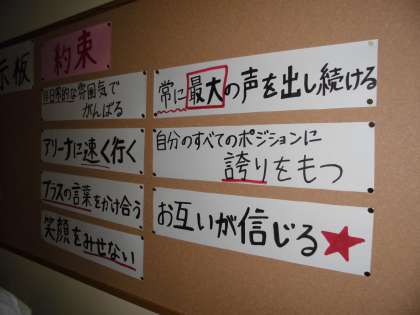 示板
約束
的な雰囲気で
がんばる
アリーナに速く行く
プラスの言葉をかけ合う
笑顔をみせない
常に最大の声を出し続ける
自分のすべてのポジションに
誇りをもつ
お互いが信じる